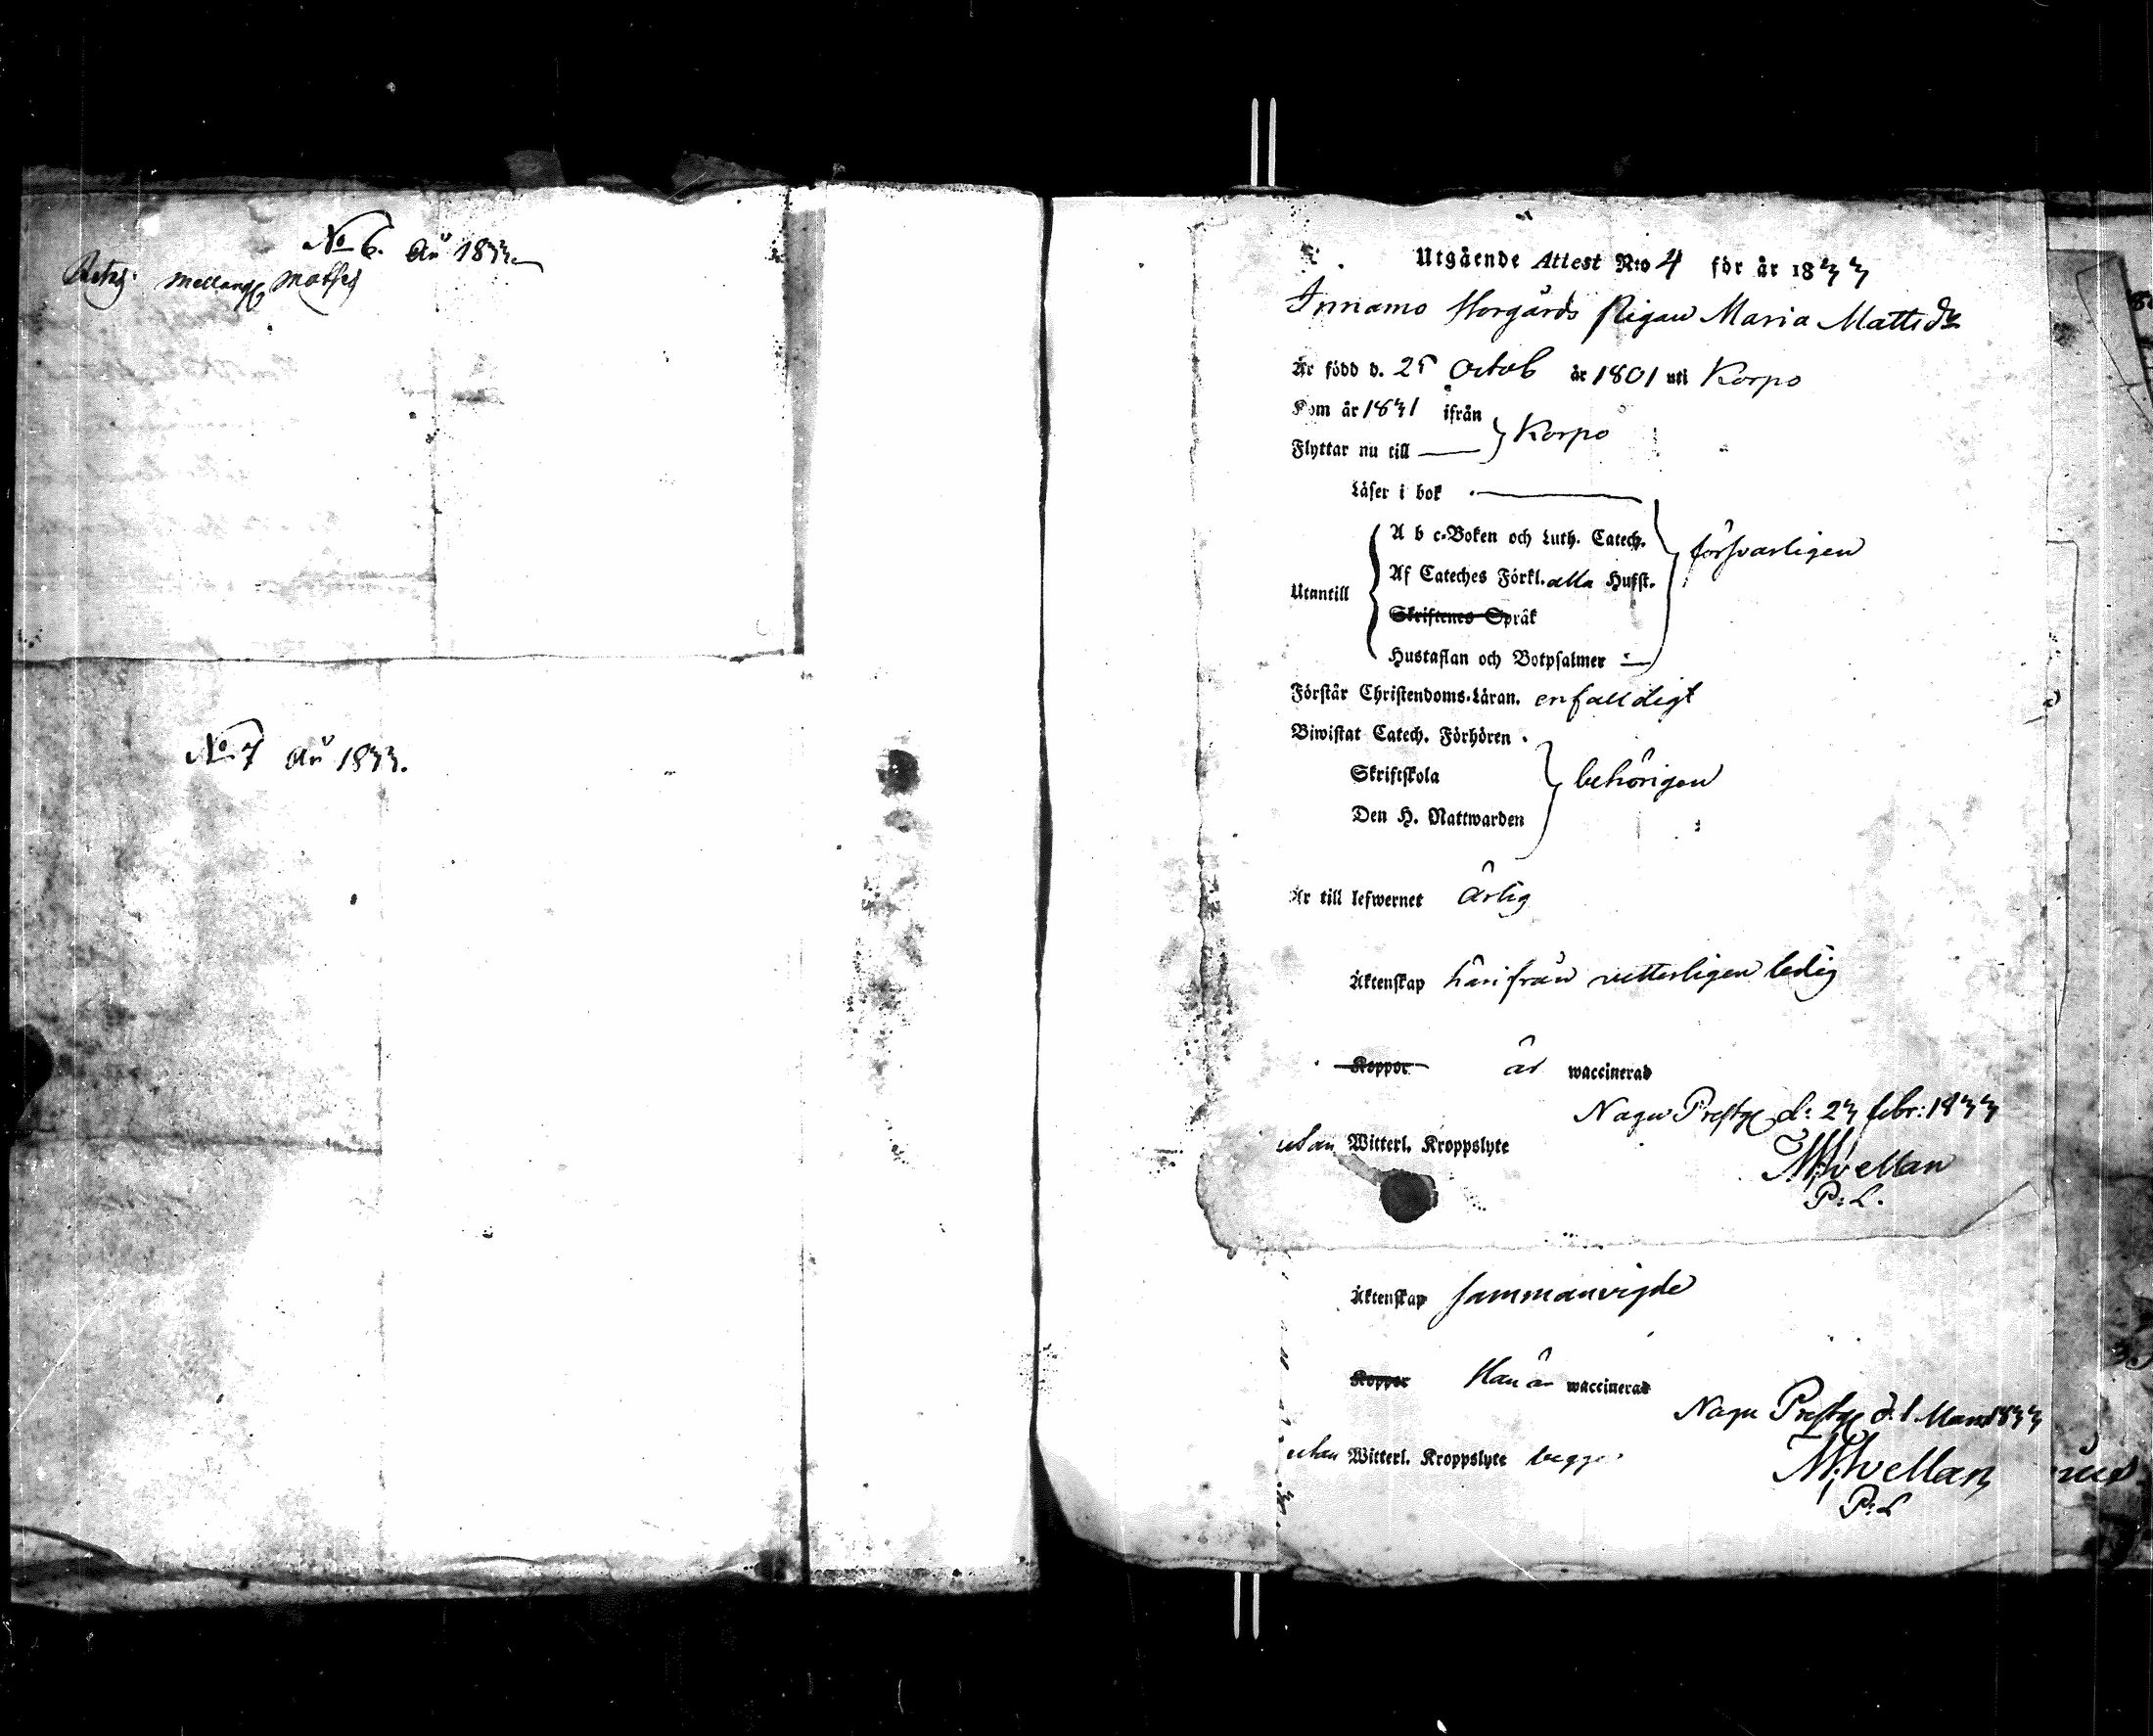 No 6. År 1833
mellang Matts
No 7 År 1833.
Utgående Attest N:o 4 för år 1833
Innamo Storgårds Pigan Maria Mattsdr
Är född d. 25 Octob år 1801 uti Korpo
Kom år 1831 ifrån
Korpo
Flyttar nu till
Läser i bok
A b c-Boken och Luth. Catech.
försvarligen
Af Cateches Förkl. alla Hufst.
Utantill
Skriftenes Språk
Hustaflan och Botpsalmer
Förstår Christendoms-Läran. enfalldigt
Biwistat Catech. Förhören
Skriftskola
behörigen
Den H. Nattwarden
Är till lefwernet ärlig
Äktenskap härifrån vetterligen ledig
Koppor är waccinerad
Nagu Prestg d: 23 febr: 1833
utan Witterl. Kroppslyte
P: L.
Äktenskap sammanvigde
Koppor Han är waccinerad
Nagu Prestg d. 1 Mars 1833
utan Witterl. Kroppslyte begge
P: L